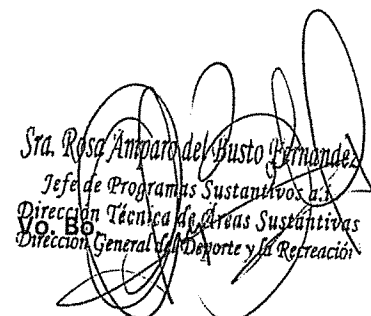 Sra. Rosa Amparo del Busto Fernández
Jefe de Programas Sustantivos a.i.
Dirección Técnica de Áreas Sustantivas
Vo. Bo.
Dirección General del Deporte y la Recreación